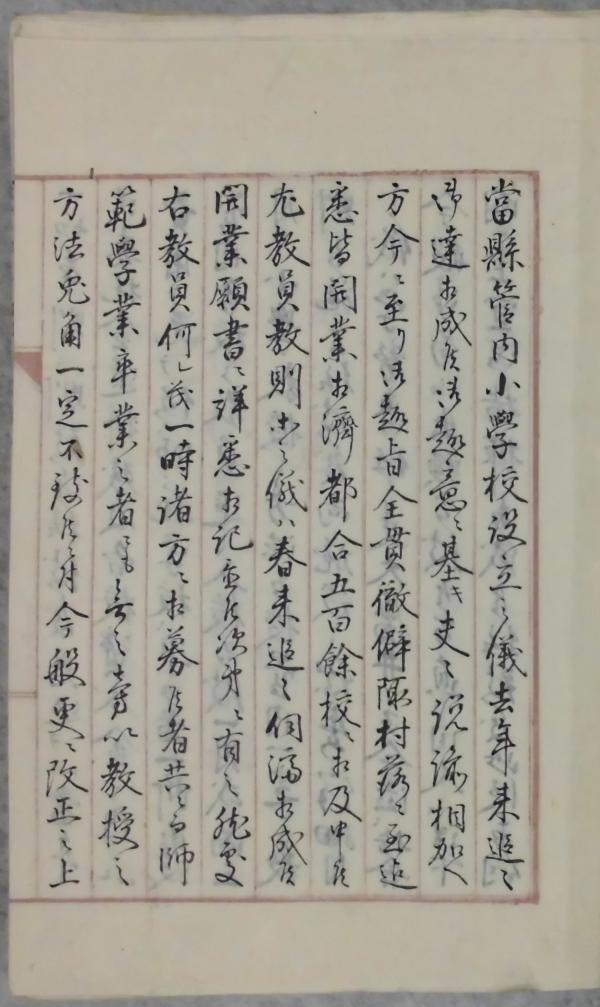 當縣管内小學校設立之儀去年来追々
御達相成候御趣意ニ基キ夫々説諭相加へ
方今ニ至り御趣旨全貫徹僻陬村落ニ至迄
悉皆開業相濟都合五百餘校ニ相及申候
尤教員教則等之儀ハ春来追々伺済相成候
開業願書ニ詳悉相記置候次第ニ有之然處
右教員何レ茂一時諸方ニ相募候者共ニ而師
範學業卒業之者ニも無之旁以教授之
方法兎角一定不致候ニ付今般更ニ改正之上